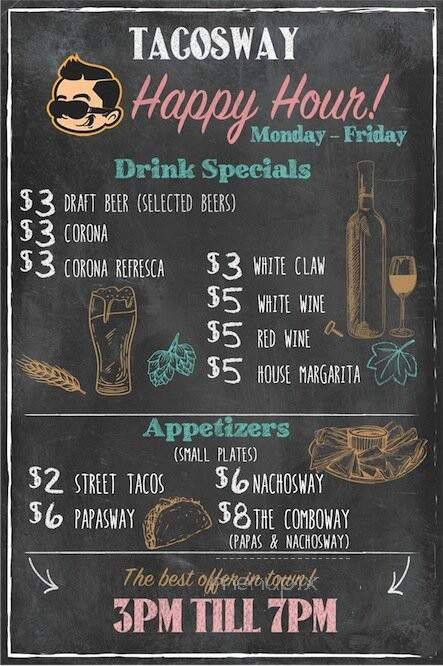 TACOSWAY
Happy Hour!
Monday - Friday
Drink Specials
$3 DRAFT BEER (SELECTED BEERS)
$3 CORONA
$3 CORONA REFRESCA
$3 WHITE CLAW
$5 WHITE WINE
$5 RED WINE
$5 HOUSE MARGARITA
Appetizers
(SMALL PLATES)
$2 STREET TACOS
$6 PAPASWAY
$6 NACHOSWAY
$8 THE COMBOWAY
(PAPAS & NACHOSWAY)
The best offer in town!
menupix
3PM TILL 7PM